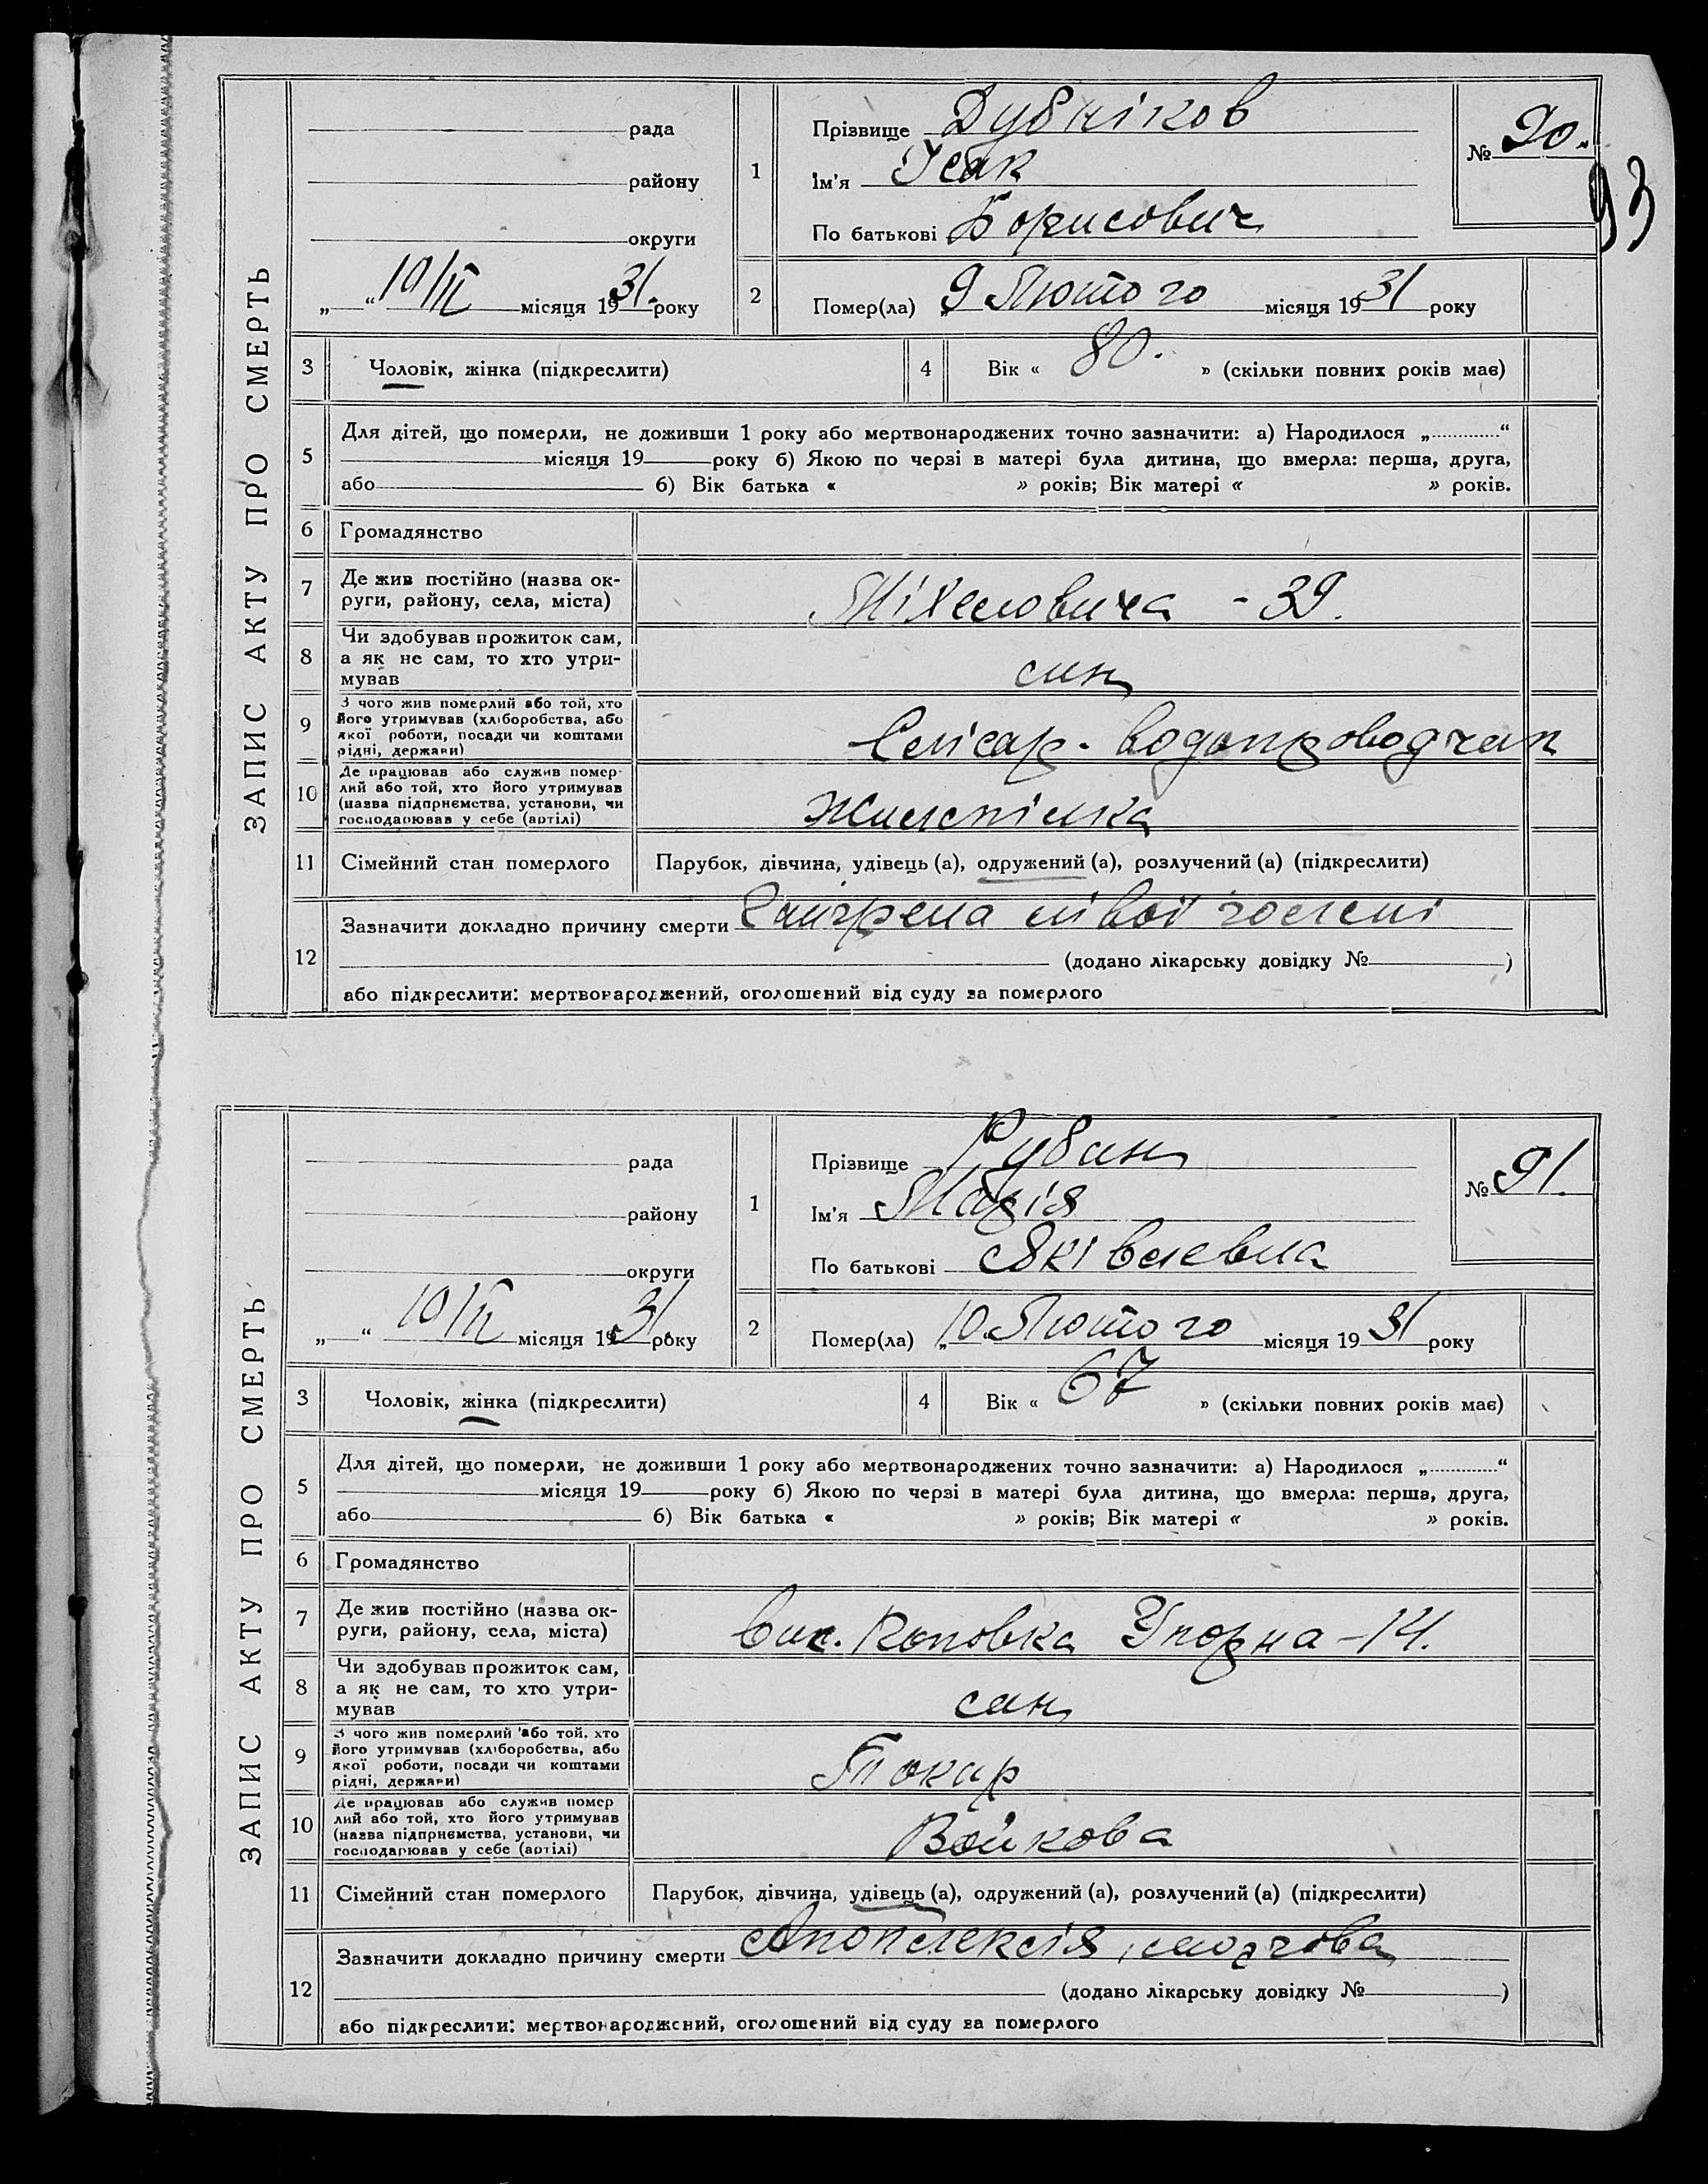 ЗАПИС АКТУ ПРО СМЕРТЬ
рада
району
округи
„ “ 10/II місяця 1931. року
1
Прізвище Дубніков
Ім'я Ісак
По батькові Борисович
№ 90.
93
2
Помер(ла) „9 Лютого місяця 1931 року
3
Чоловік, жінка (підкреслити)
4
Вік « 80. » (скільки повних років має)
5
Для дітей, що померли, не доживши 1 року або мертвонароджених точно зазначити: а) Народилося „ “
місяця 19 року б) Якою по черзі в матері була дитина, що вмерла: перша, друга,
або б) Вік батька « » років; Вік матері « » років.
6
Громадянство
7
Де жив постійно (назва ок-
руги, району, села, міста)
Міхеловича - 39.
8
Чи здобував прожиток сам,
а як не сам, то хто утри-
мував
син
9
З чого жив померлий або той, хто
його утримував (хліборобства, або
якої роботи, посади чи коштами
рідні, держави)
Слісар - водопроводчик
10
Де працював або служив помер-
лий або той, хто його утримував
(назва підприємства, установи, чи
господарював у себе (артілі)
Жилспілка
11
Сімейний стан померлого
Парубок, дівчина, удівець (а), одружений (а), розлучений (а) (підкреслити)
12
Зазначити докладно причину смерти Гангрена лівої голені
(додано лікарську довідку № )
або підкреслити: мертвонароджений, оголошений від суду за померлого
ЗАПИС АКТУ ПРО СМЕРТЬ
рада
району
округи
„ “ 10/II місяця 1931 року
1
Прізвище Рубан
Ім'я Марія
По батькові Яківлевна
№ 91.
2
Помер(ла) „10 Лютого місяця 1931 року
3
Чоловік, жінка (підкреслити)
4
Вік « 67 » (скільки повних років має)
5
Для дітей, що померли, не доживши 1 року або мертвонароджених точно зазначити: а) Народилося „ “
місяця 19 року б) Якою по черзі в матері була дитина, що вмерла: перша, друга,
або б) Вік батька « » років; Вік матері « » років.
6
Громадянство
7
Де жив постійно (назва ок-
руги, району, села, міста)
Вис. Упорна - 14.
8
Чи здобував прожиток сам,
а як не сам, то хто утри-
мував
син
9
З чого жив померлий або той, хто
його утримував (хліборобства, або
якої роботи, посади чи коштами
рідні, держави)
Токар
10
Де працював або служив помер
лий або той, хто його утримував
(назва підприємства, установи, чи
господарював у себе (артілі)
Войкова
11
Сімейний стан померлого
Парубок, дівчина, удівець (а), одружений (а), розлучений (а) (підкреслити)
12
Зазначити докладно причину смерти Апоплексія мозгова
(додано лікарську довідку № )
або підкреслити: мертвонароджений, оголошений від суду за померлого